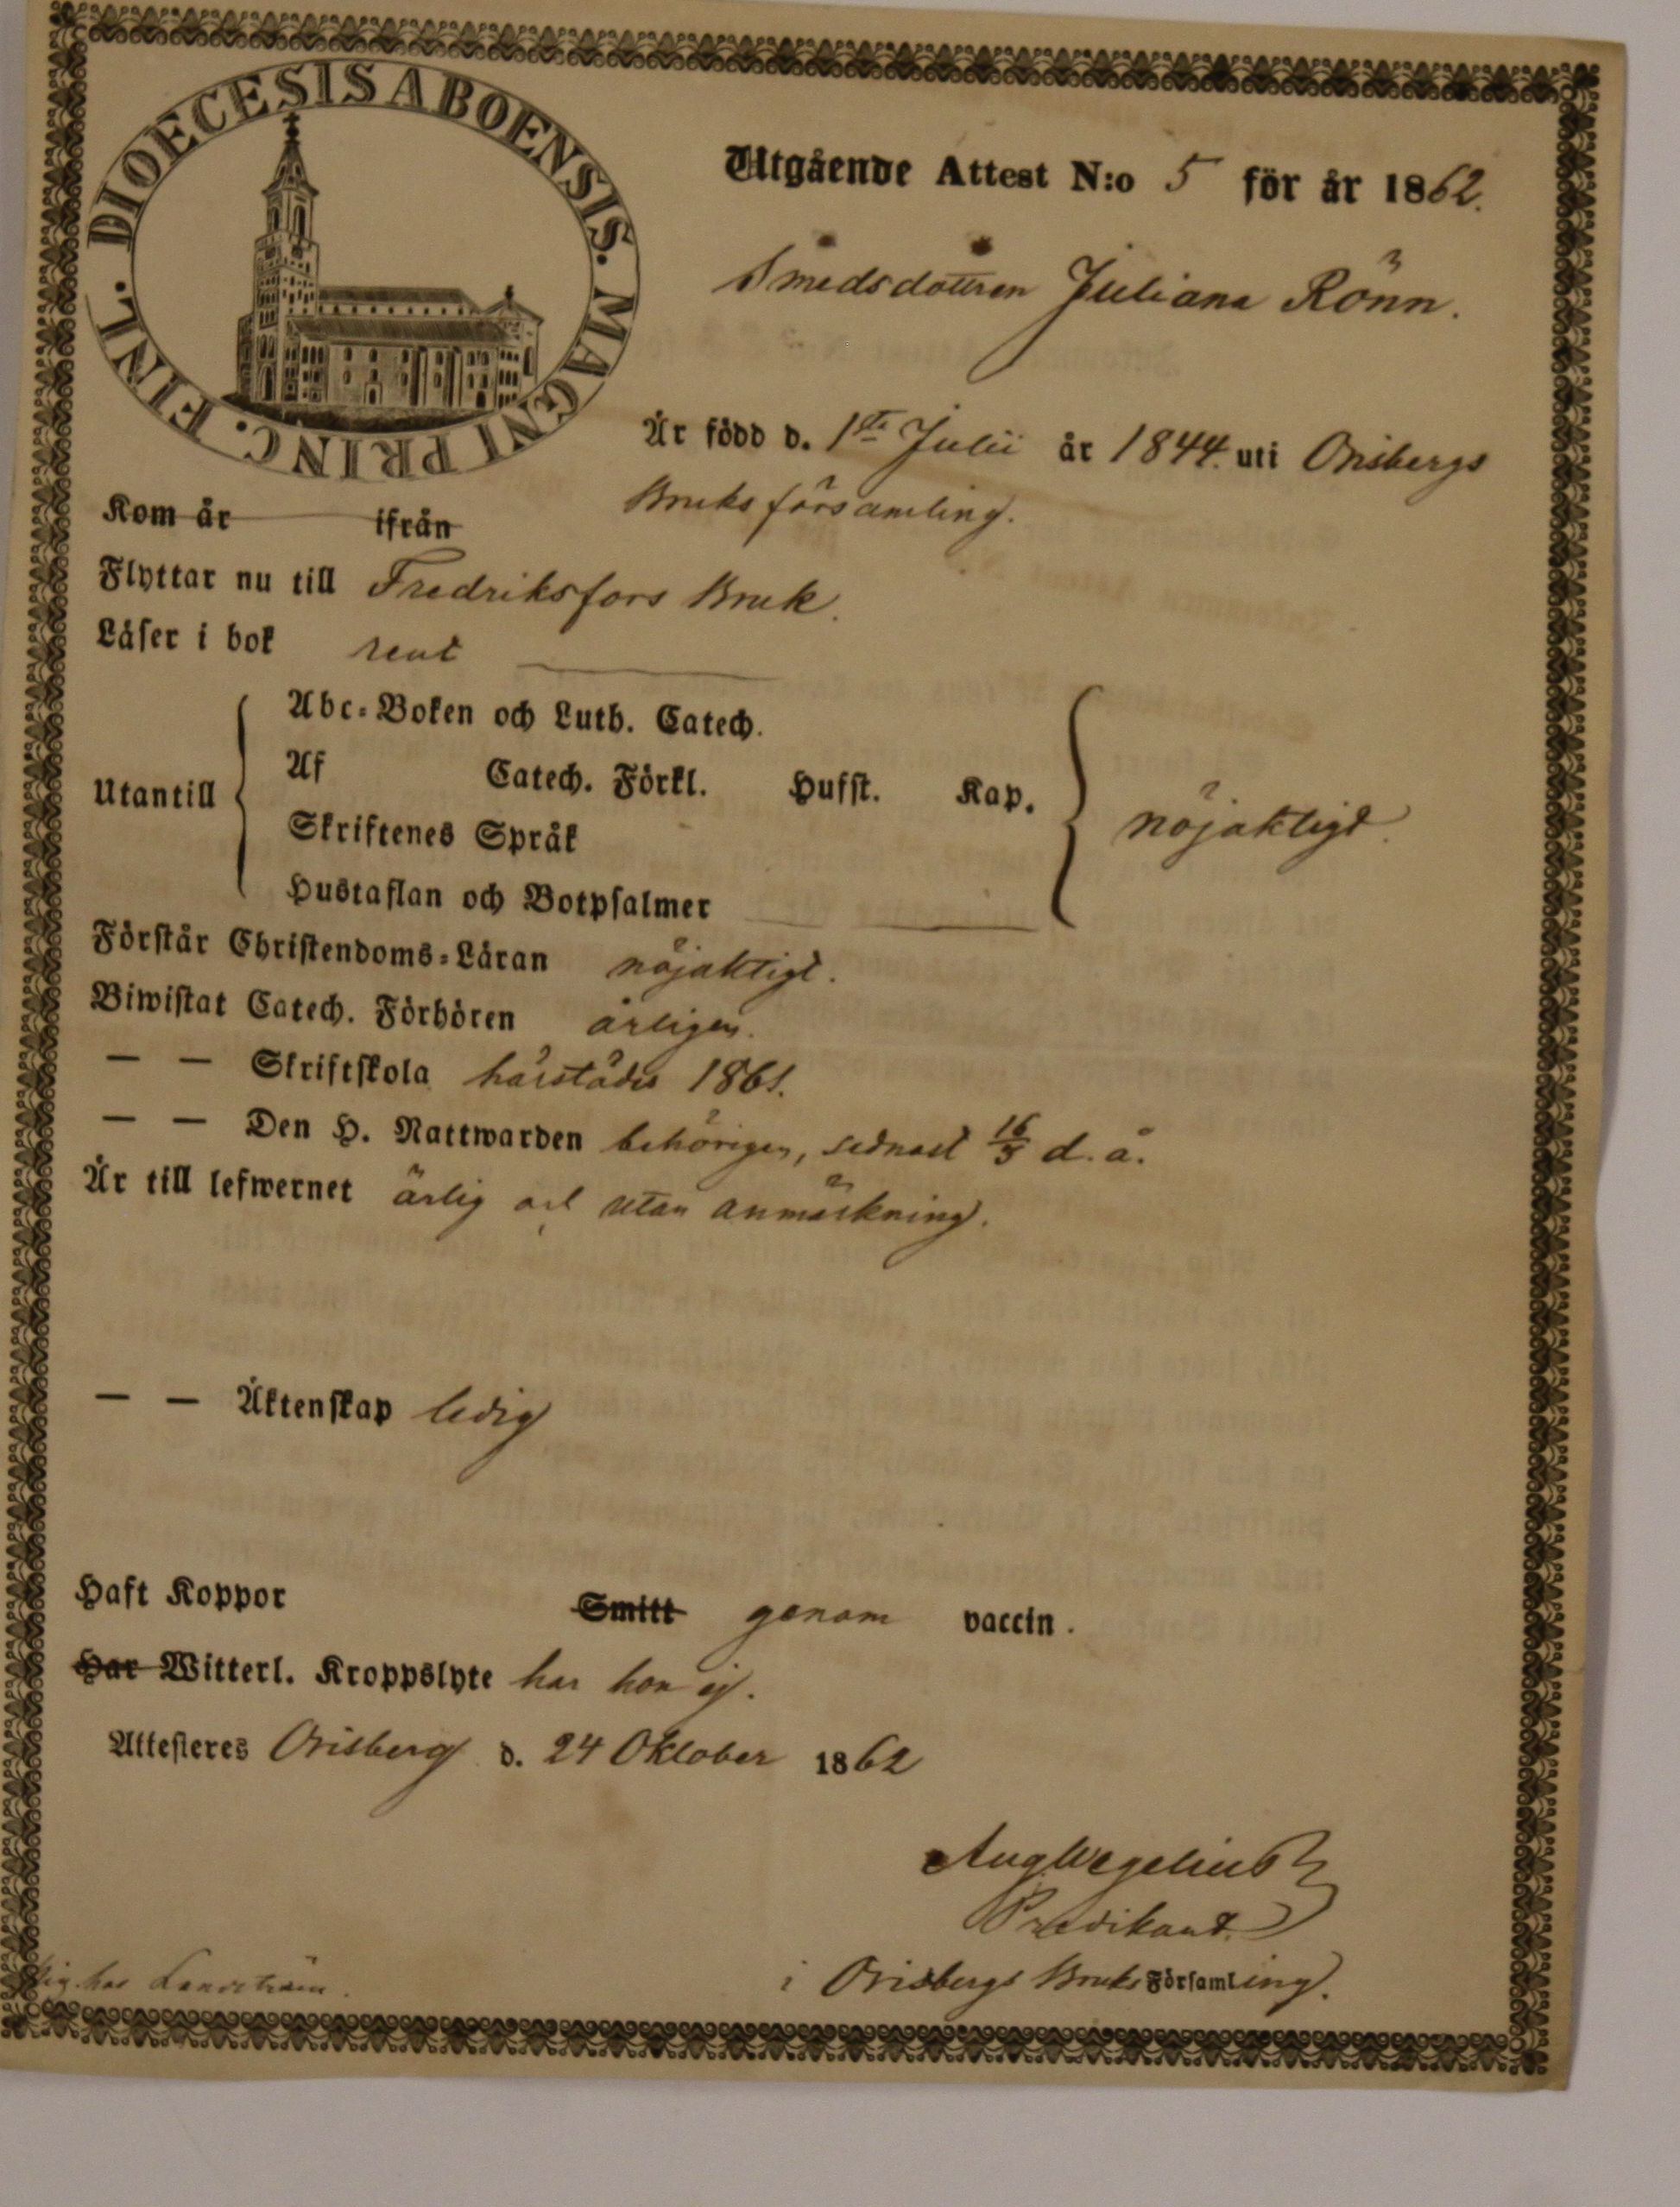 DIOECESIS ABOENSIS. MAGNI PRINC. FINL.
Utgående Attest N:o 5 för år 1862.
Smedsdottren Juliana Rönn.
Är född d. 1ste Julii år 1844. uti Orisbergs
Bruks församling.
Kom år ifrån
Flyttar nu till Fredriksfors Bruk.
Läser i bok rent
Utantill
Abc-Boken och Luth. Catech.
Af Catech. Förkl. Hufst. Kap.
Skriftenes Språk
Hustaflan och Botpsalmer
nöjaktigt.
Förstår Christendoms-Läran nöjaktigt.
Biwistat Catech. Förhören årligen.
— — Skriftskola härstädes 1861.
— — Den H. Nattwarden behörigen, sednast 16/5 d. å.
Är till lefwernet ärlig och utan anmärkning.
— — Äktenskap ledig
Haft Koppor Smitt genom vaccin.
Har Witterl. Kroppslyte har hon ej.
Attesteres Orisberg d. 24 Oktober 1862
Aug Wegelius
Predikant
i Orisbergs Bruks Församling.
hos Landström.